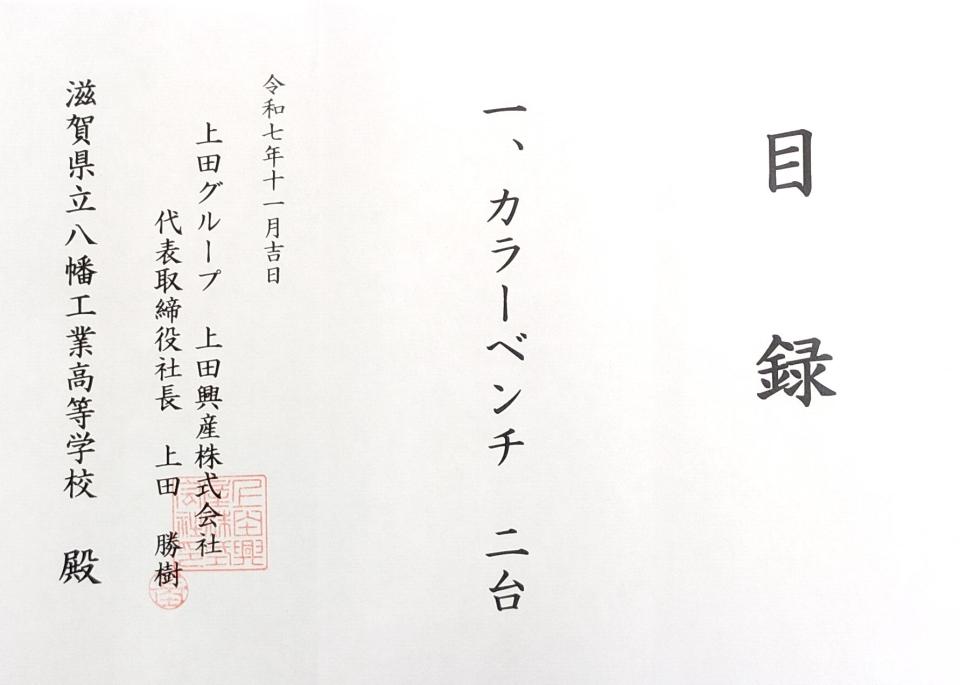 目録
一、カラーベンチ 二台
令和七年十一月吉日
上田グループ 上田興産株式会社
代表取締役社長 上田 勝樹
滋賀県立八幡工業高等学校 殿